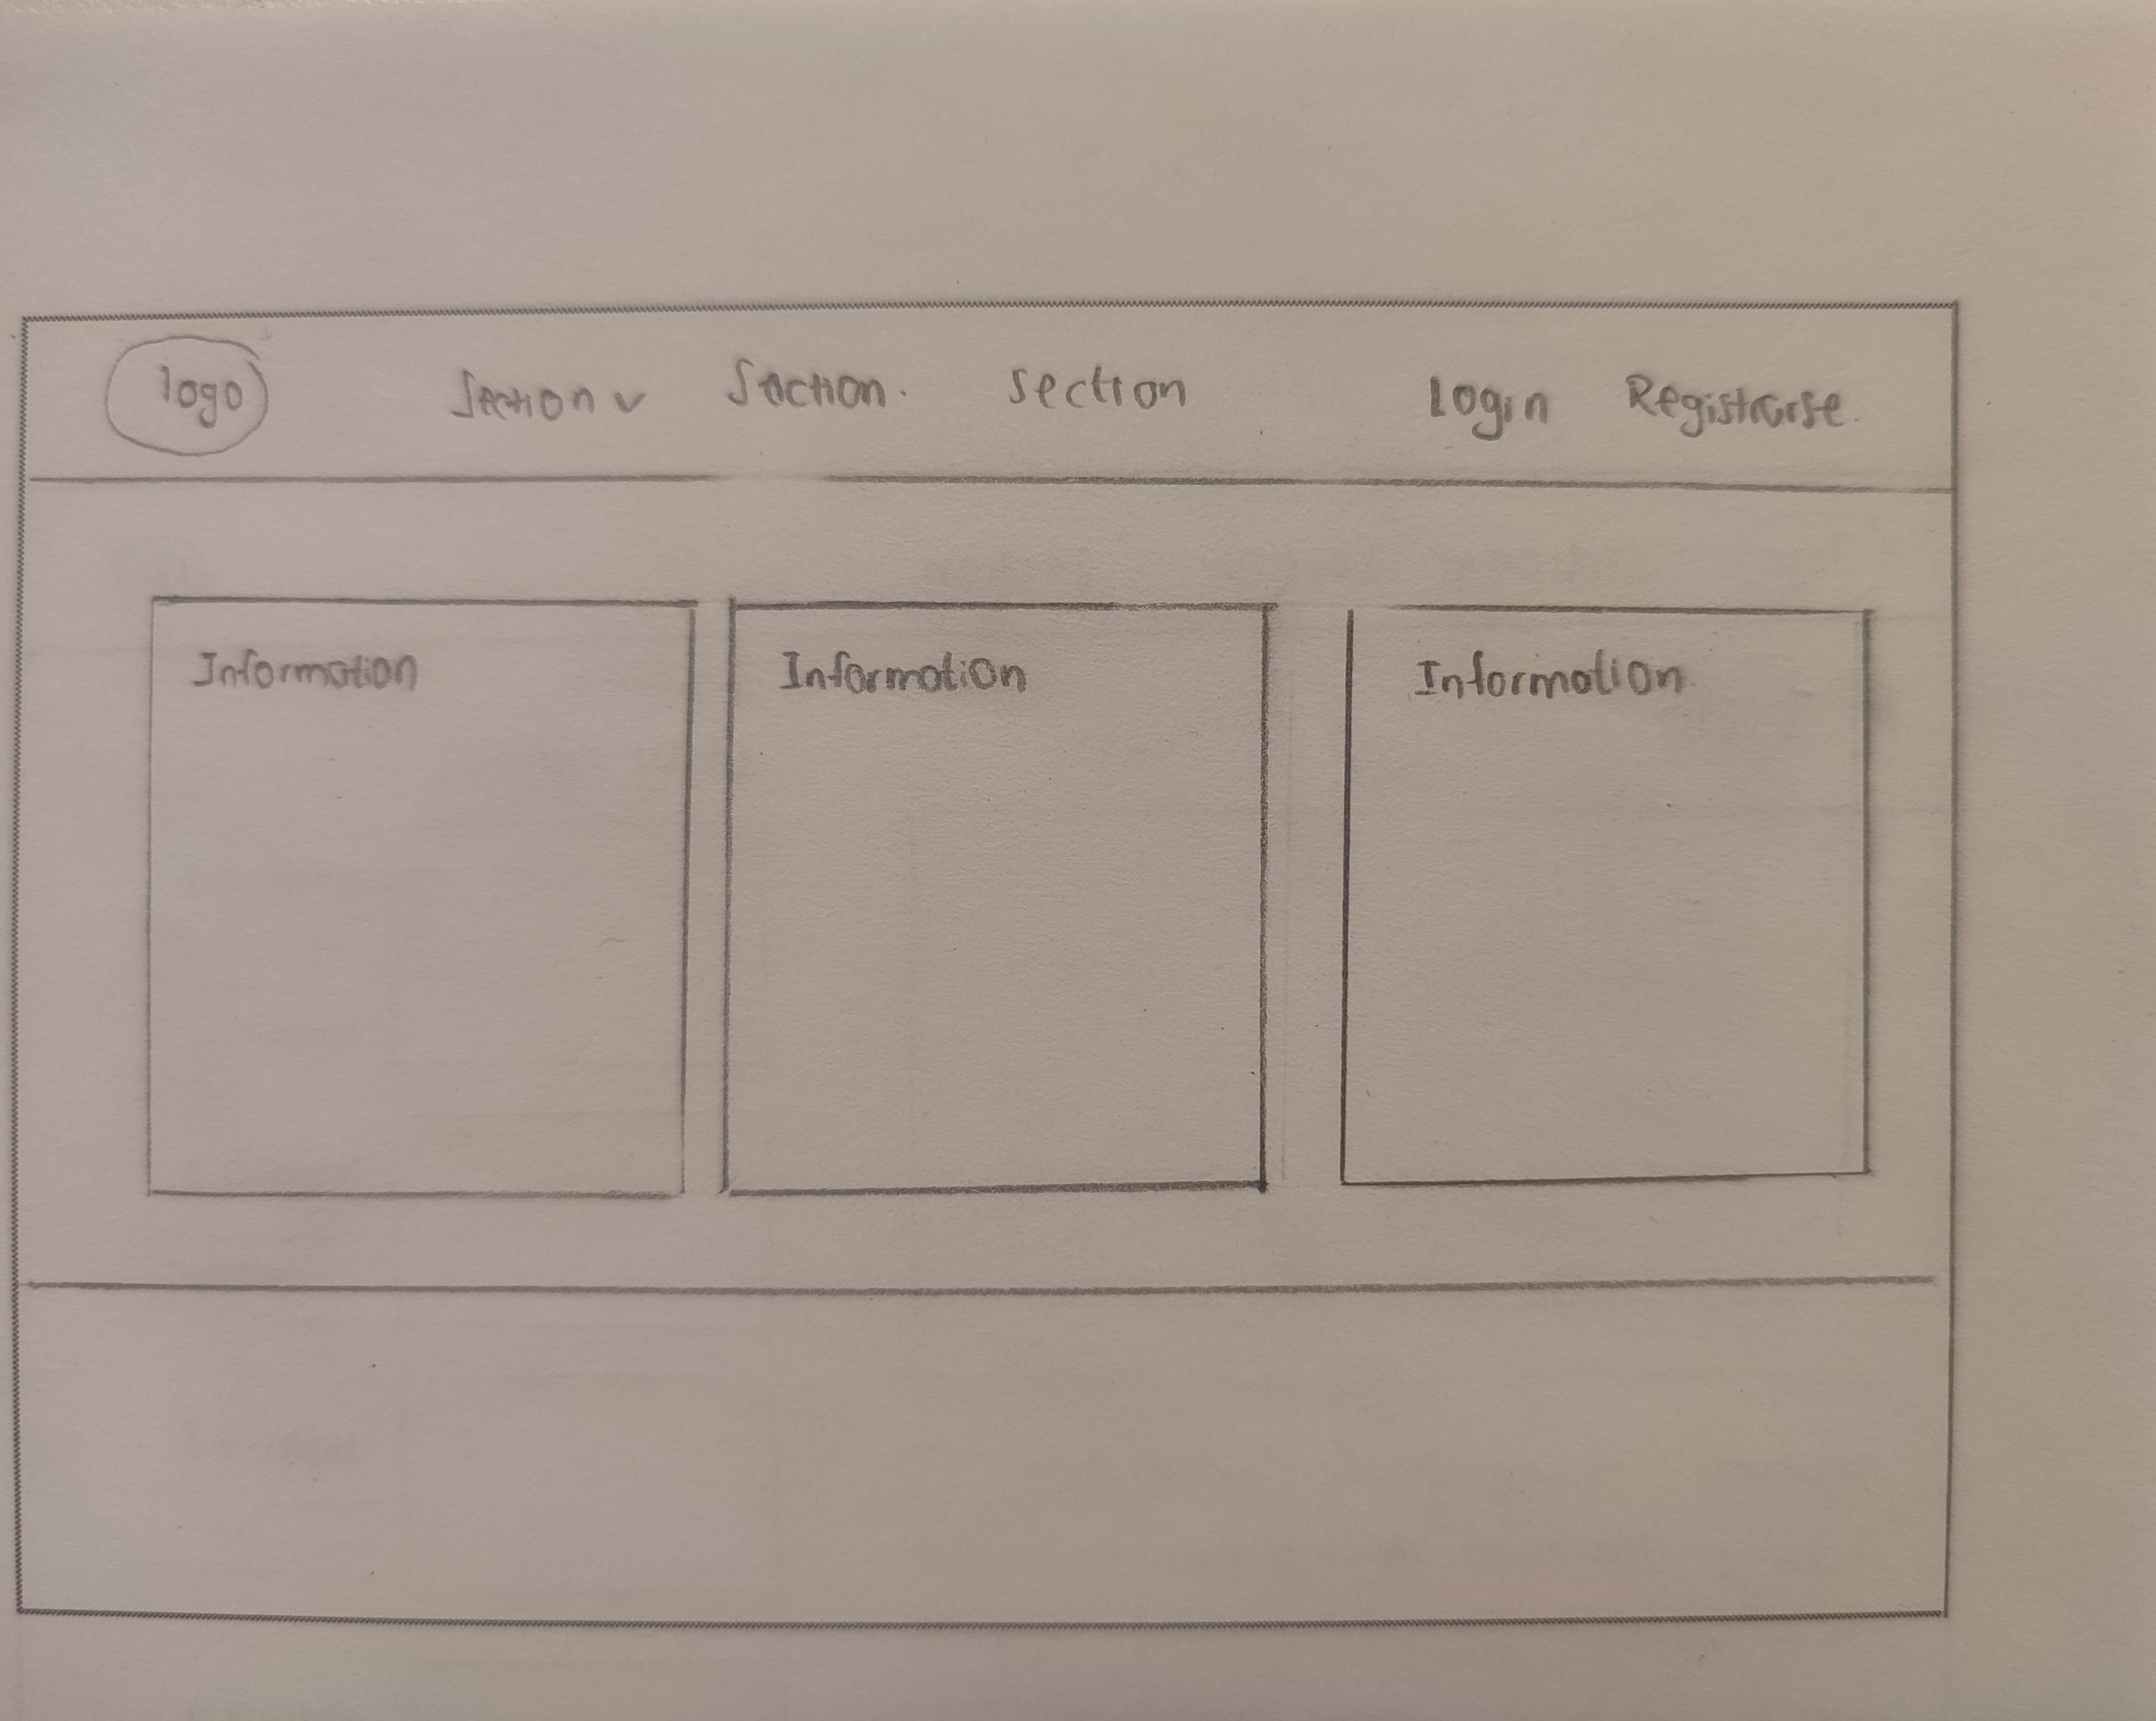 logo Section v Section. Section login Registrarse.
Information Information Information